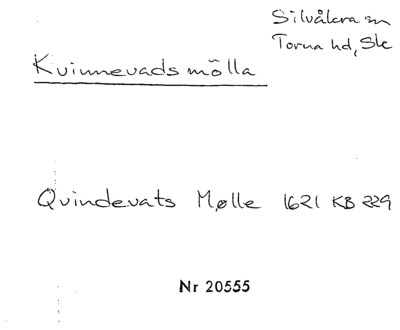 Silvåkra sn
Torna hd, Sk
Kvinnevads mölla
Qvindevats Mølle 1621 KB 229
Nr 20555